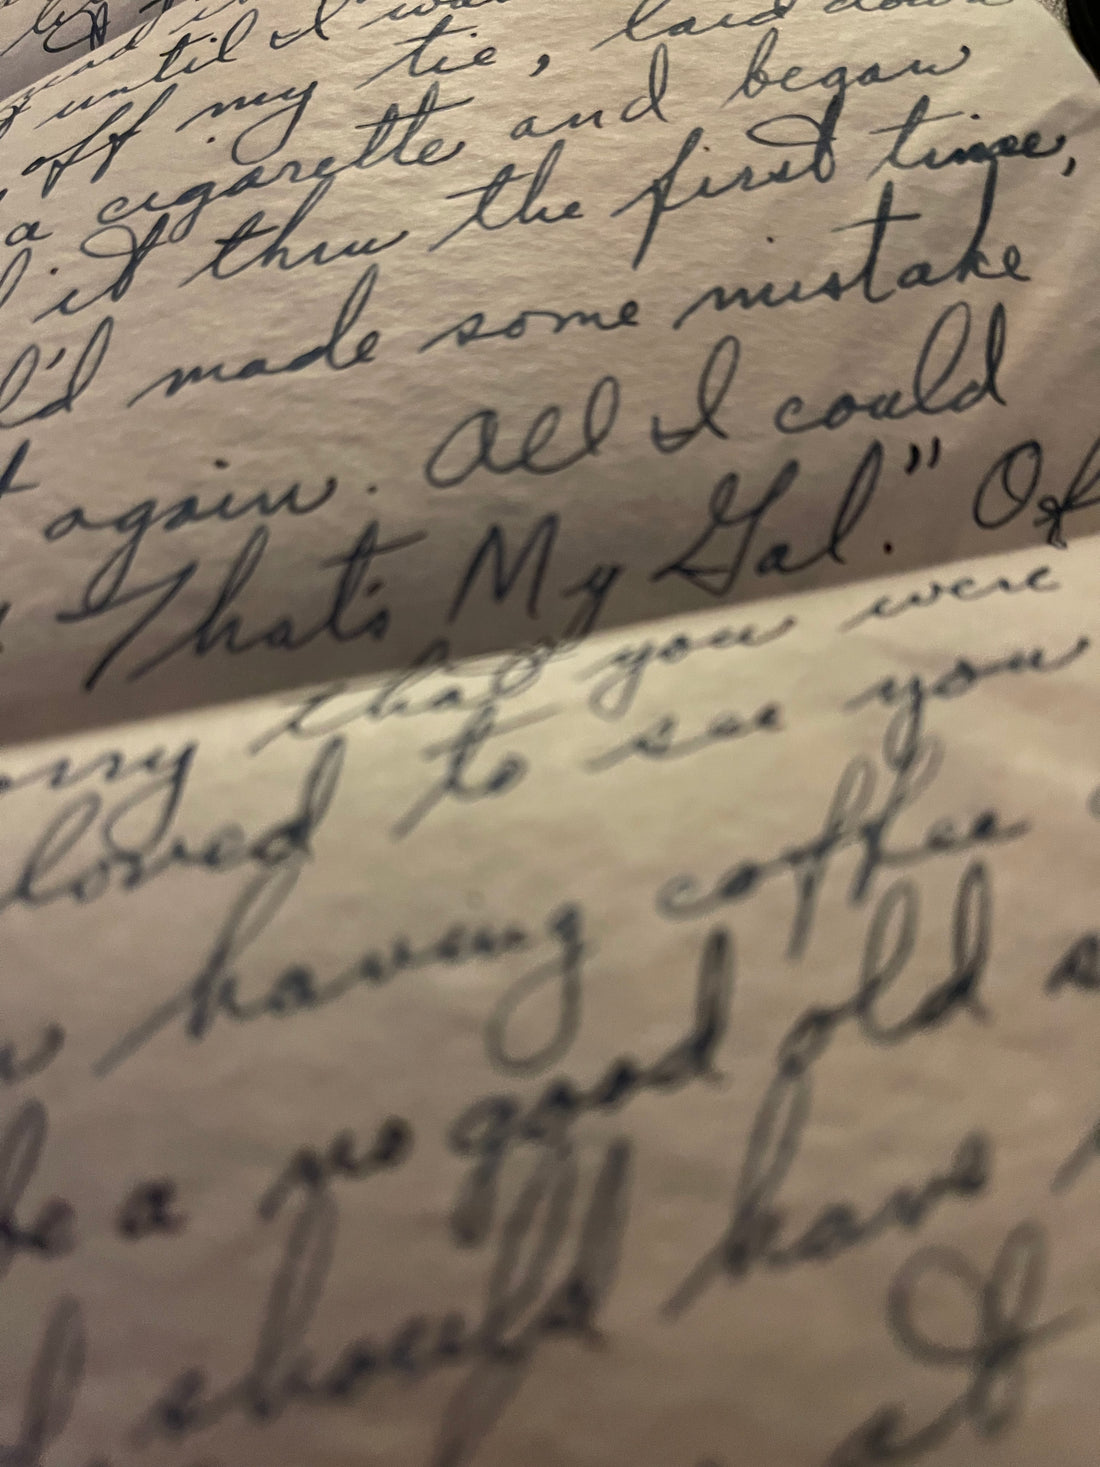 until I was
off my tie, laid down
a cigarette and began
it thru the first time,
I'd made some mistake
again. All I could
Thats My Gal." Of
that you were
loved to see you
having coffee
a no good old
should have
at